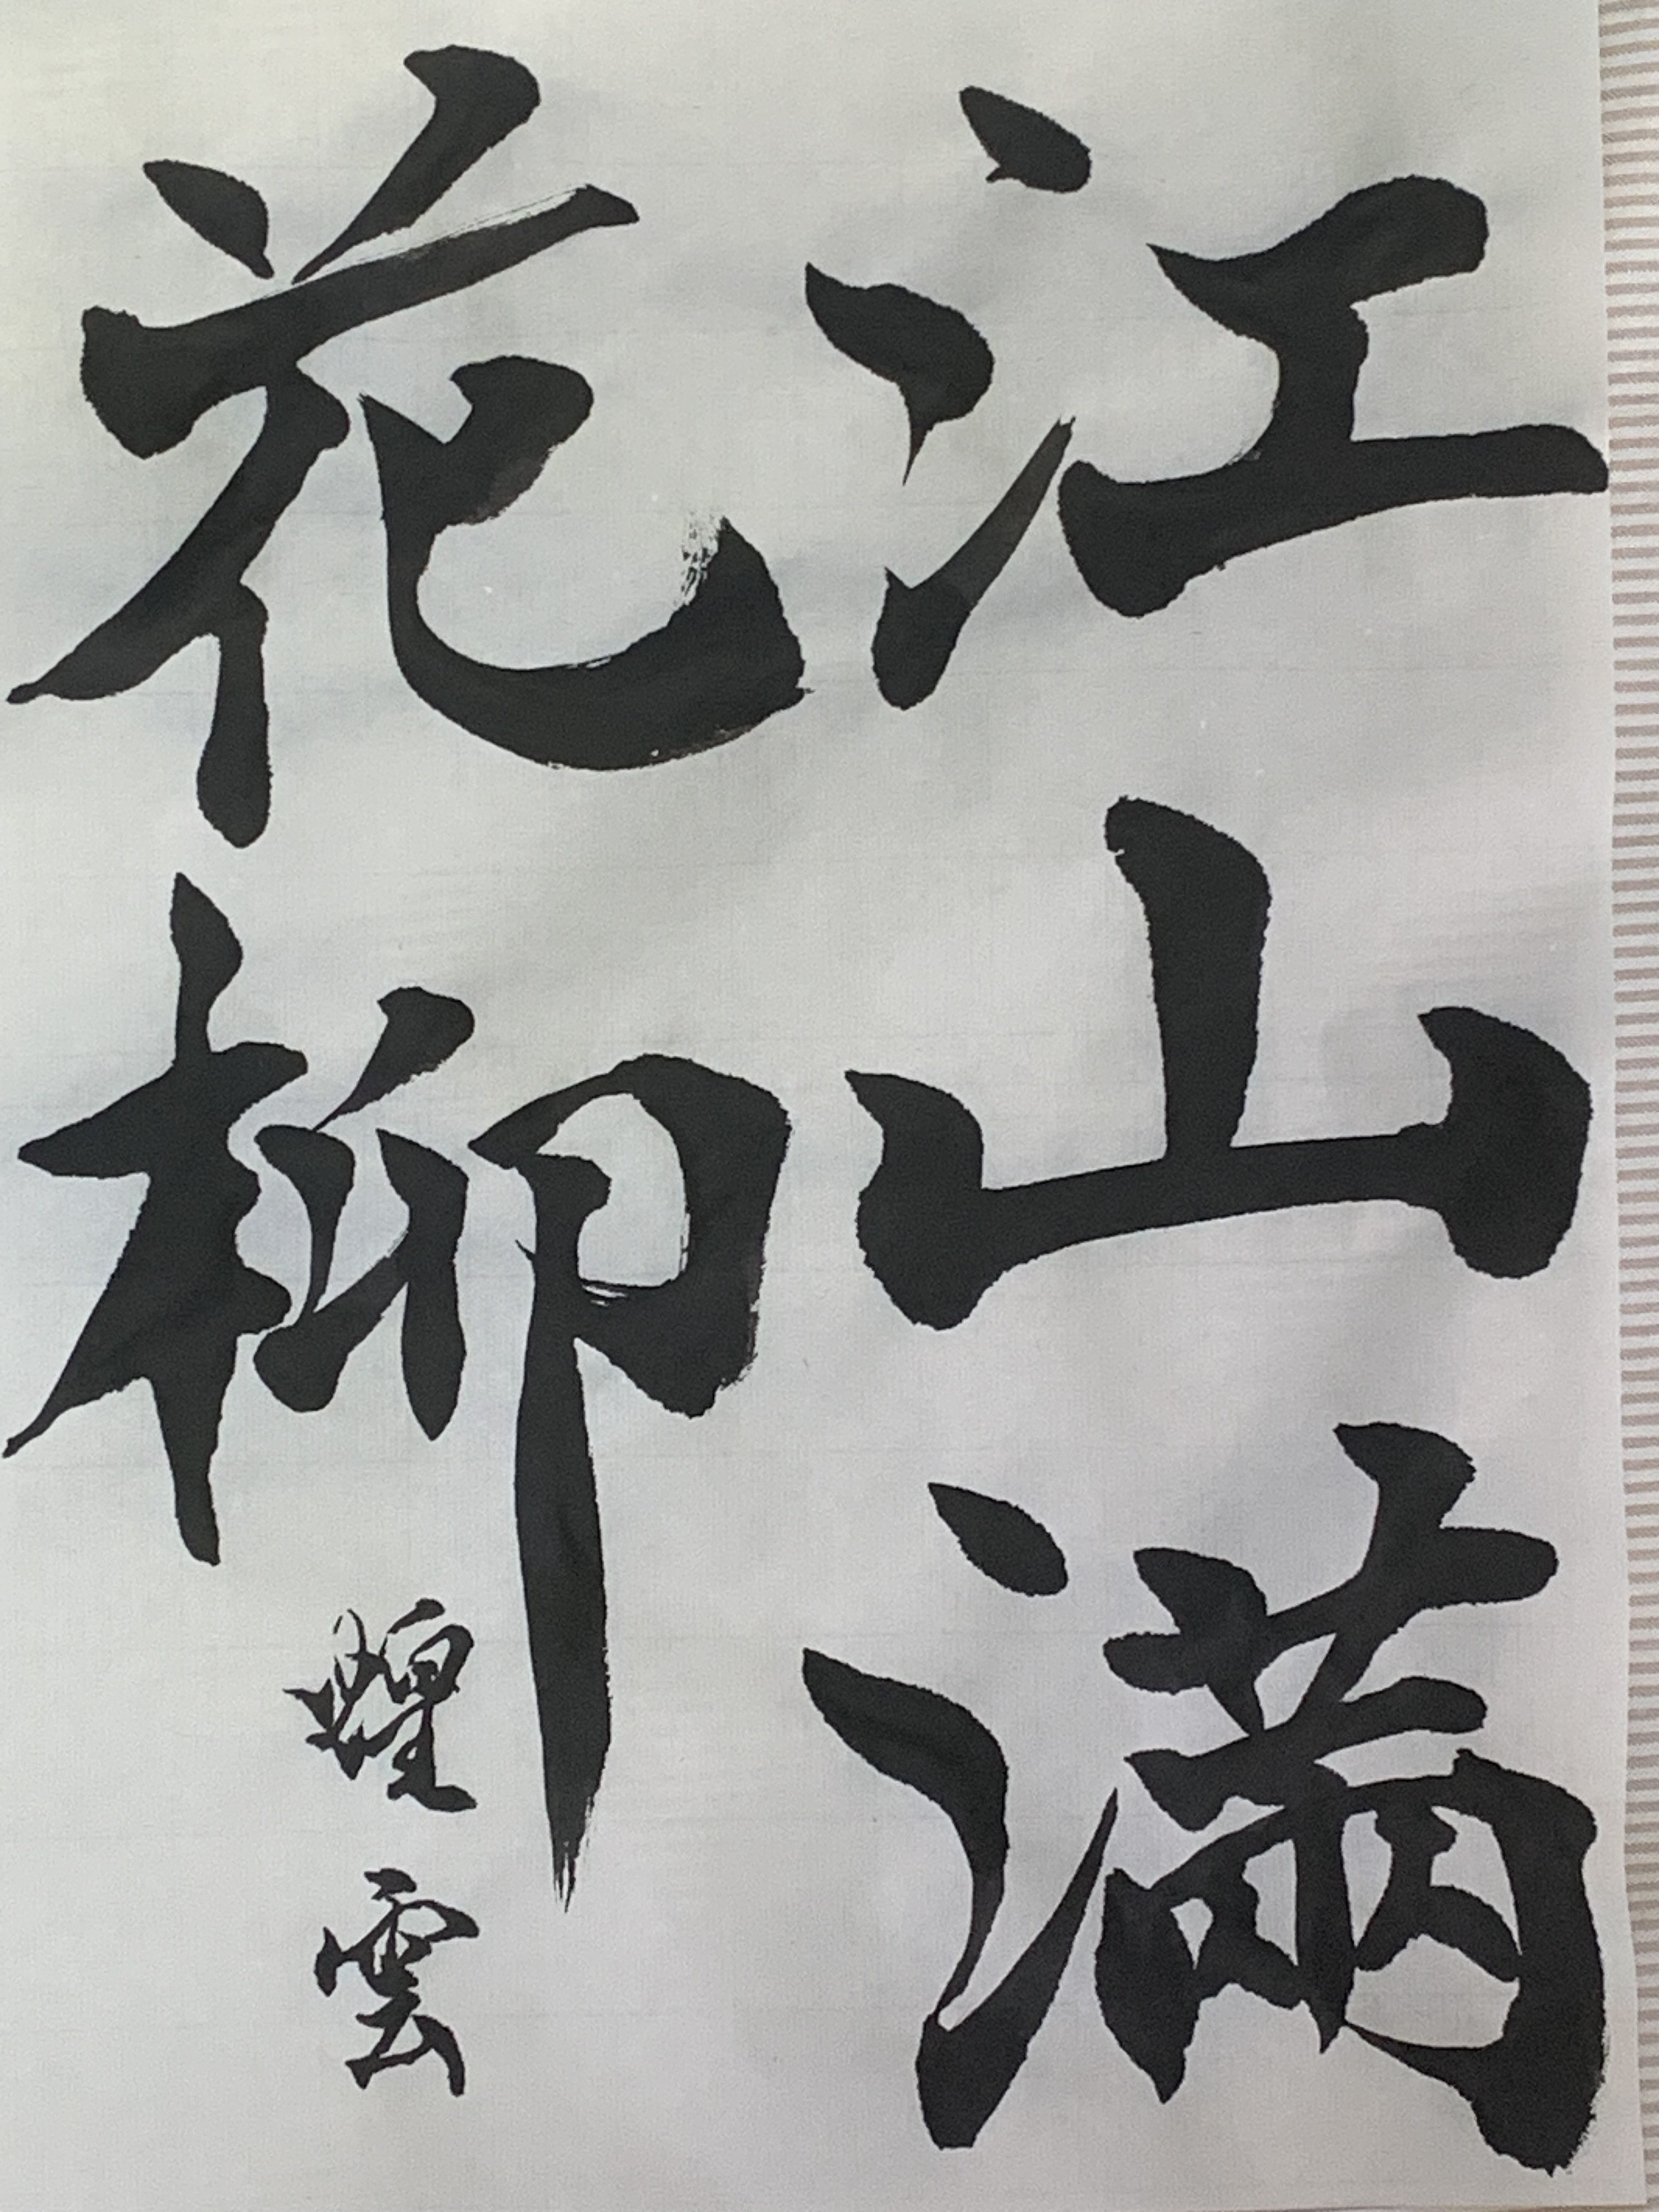 江山滿
花柳
煌雲